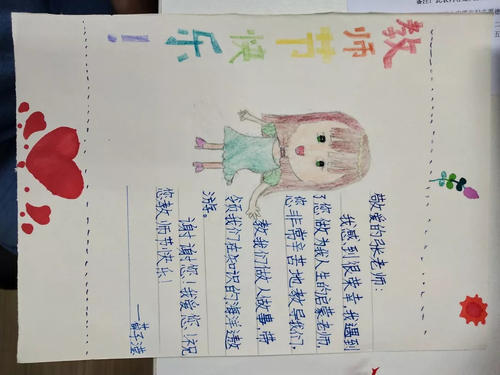 教师节快乐！
敬爱的张老师：
我感到很荣幸，我遇到
了您做为我人生的启蒙老师，
您非常辛苦地教导我们。
教我们做人做事，带
领我们在知识的海洋遨
游。
谢谢您！我爱您！祝
您教师节快乐！